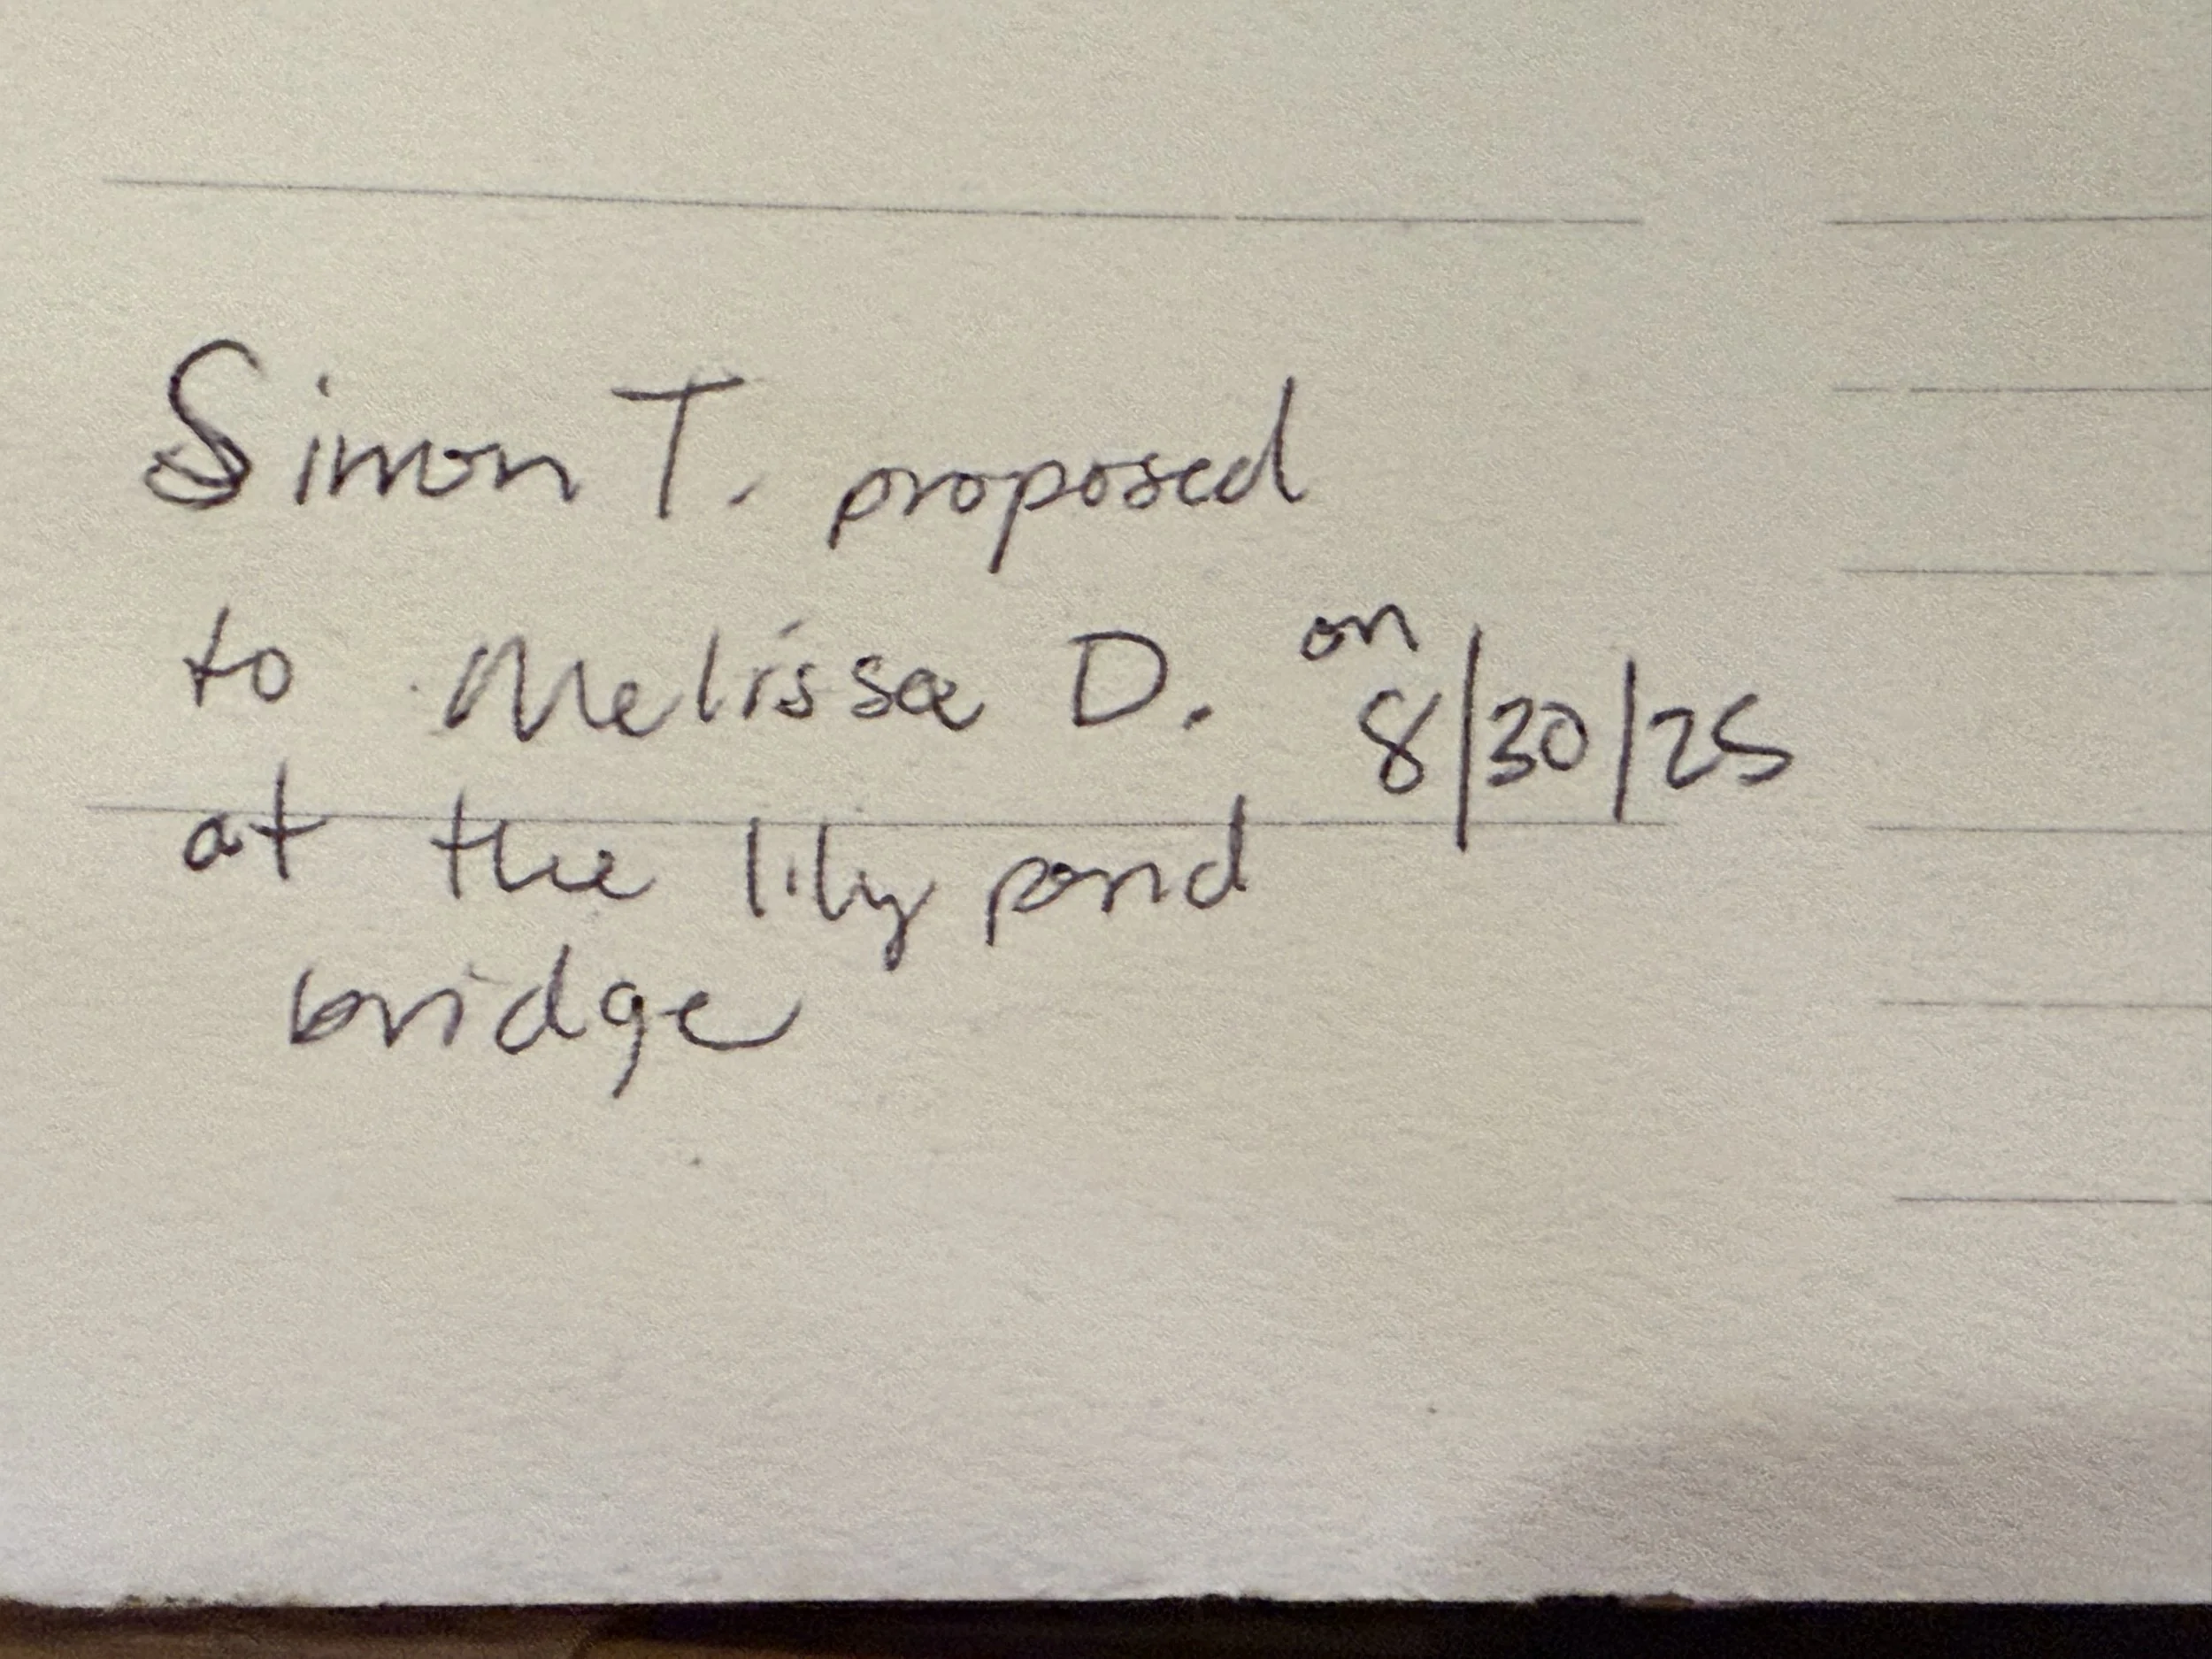 Simon T. proposed
to Melissa D. on 8/30/25
at the lily pond
bridge